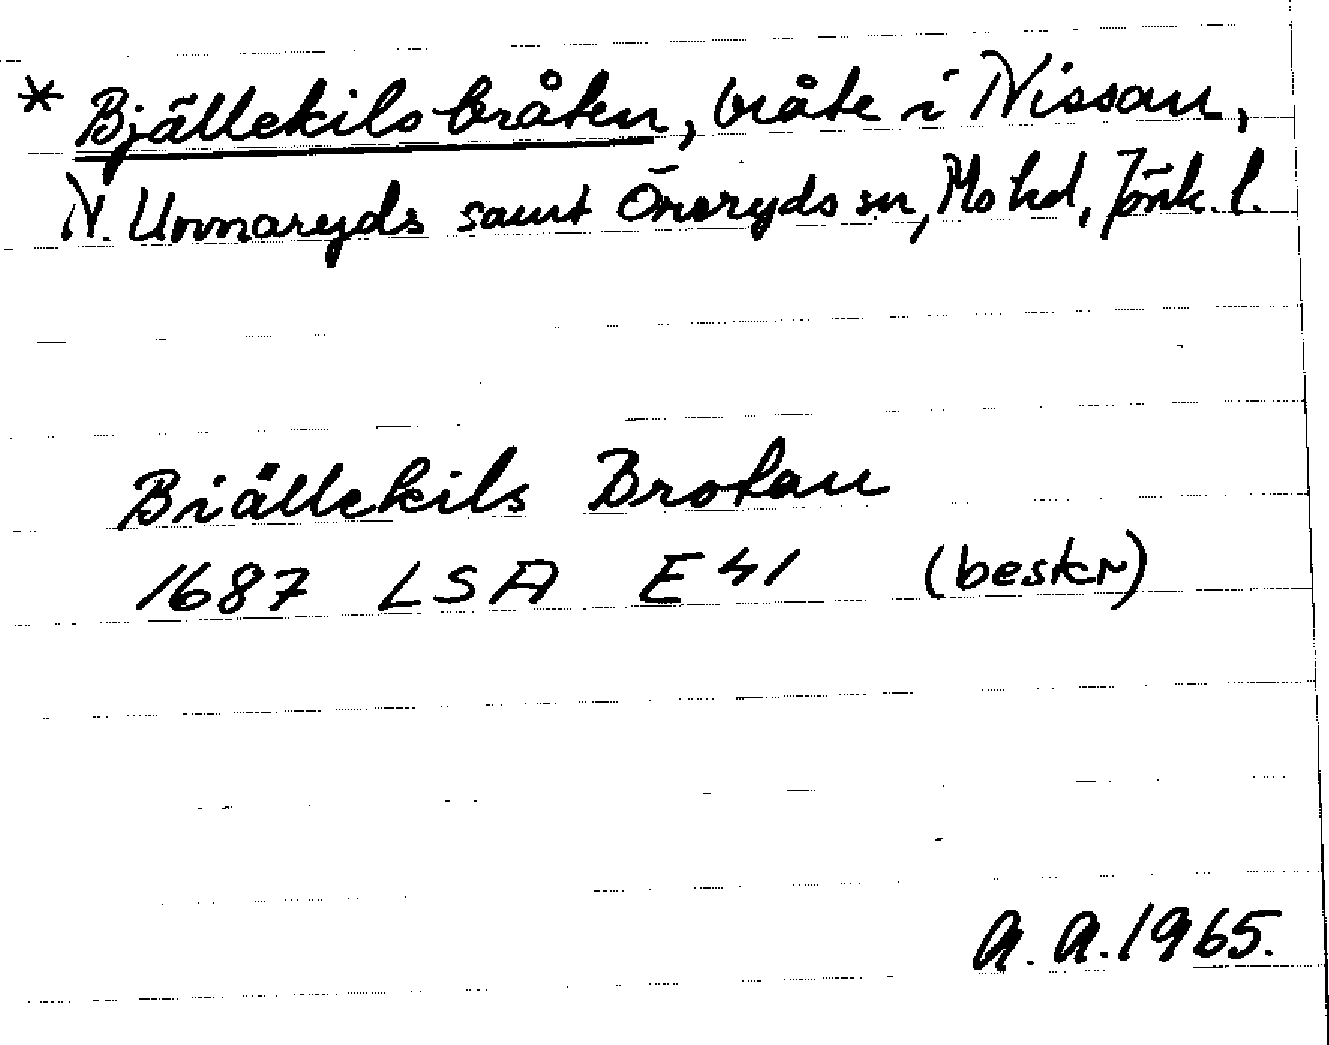 * Bjällekilsbråten, bråte i Nissan,
N. Unnaryds samt Öreryds sn, Mo hd, Jönk. l.
Biällekils Brotan
1687 LSA E 41 (beskr)
A. A. 1965.